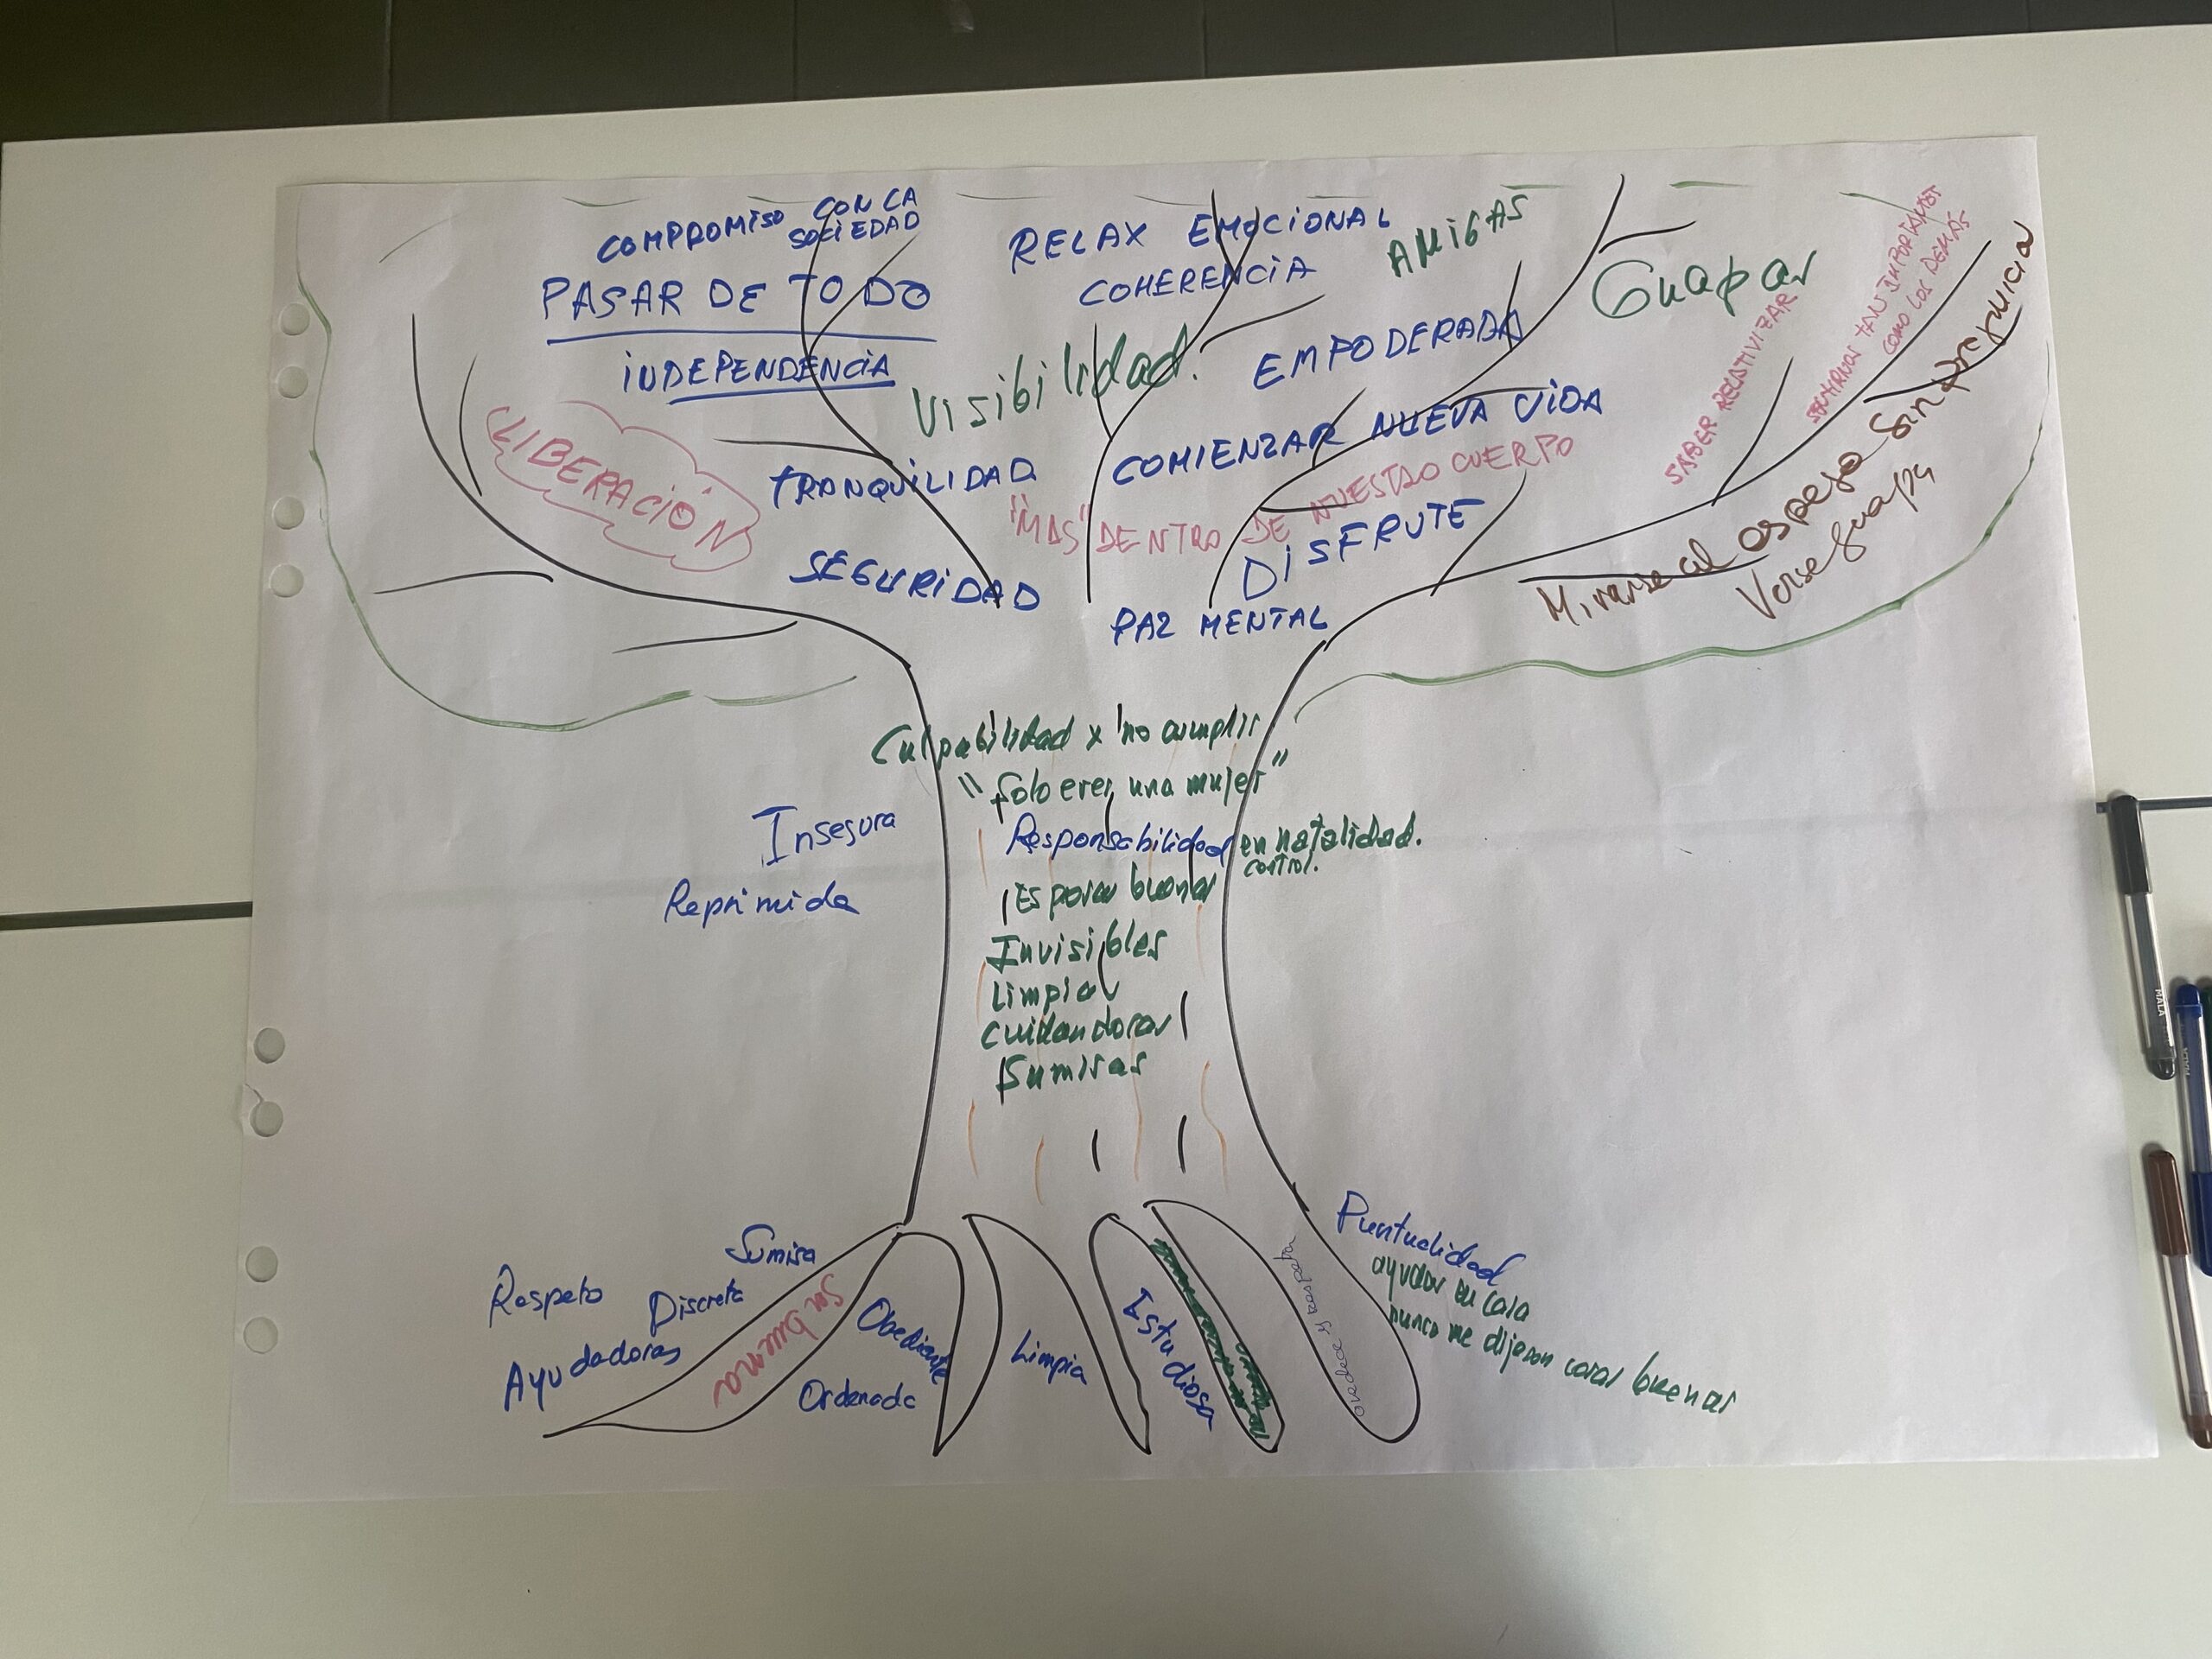 COMPROMISO CON LA
SOCIEDAD
PASAR DE TODO
INDEPENDENCIA
LIBERACIÓN
TRANQUILIDAD
SEGURIDAD
RELAX EMOCIONAL
COHERENCIA
AMIGAS
Visibilidad.
EMPODERADA
COMIENZAR NUEVA VIDA
"MAS" DENTRO DE NUESTRO CUERPO
DISFRUTE
PAZ MENTAL
Guapas
SABER RELATIVIZAR
TAN IMPORTANTES
COMO LOS DEMÁS
Mirarse al espejo
Verse guapa
Culpabilidad x no cumplir
"Solo eres una mujer"
Insegura
Responsabilidad en natalidad.
control.
Reprimida
Esposas buenas
Invisibles
Limpias
cuidandoras
Sumisas
Sumisa
Respeto
Discreta
Ayudadoras
Ser buena
Obediente
Ordenada
Limpia
Estudiosa
obedece y respeta
Puntualidad
ayudar en casa
nunca me dijeron cosas buenas